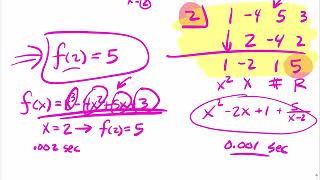 f(2) = 5
f(x) = x³ - 4x² + 5x + 3
x = 2 → f(2) = 5
.002 sec
2 1 -4 5 3
↓ 2 -4 2
1 -2 1 5
x² x # R
x² - 2x + 1 + 5/(x-2)
0.001 sec